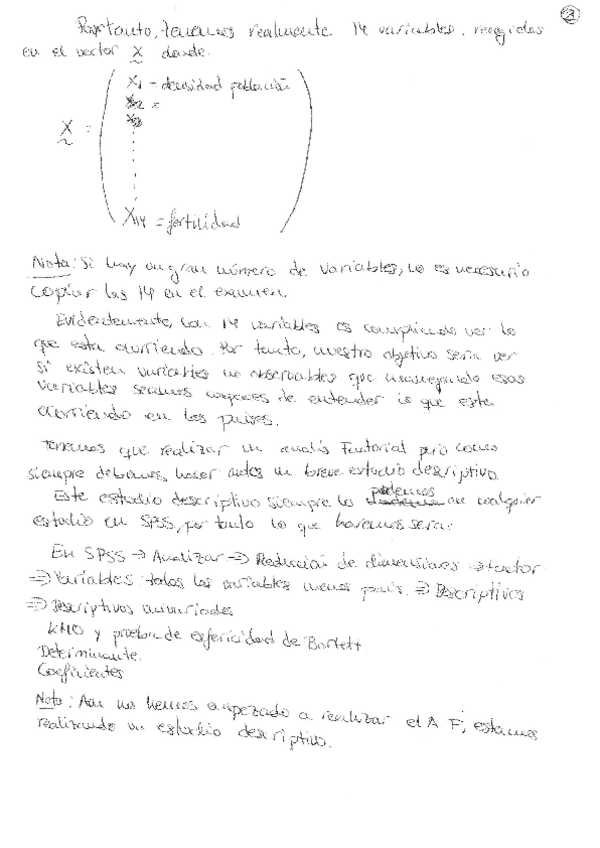 3
Por tanto, tenemos realmente 14 variables, recogidas
en el vector X donde
X = X1 - densidad población
X2 =
X3
X14 = fertilidad
Nota: Si hay un gran número de variables, no es necesario
copiar las 14 en el examen.
Evidentemente, con 14 variables es complicado ver lo
que esta ocurriendo. Por tanto, nuestro objetivo seria ver
si existen variables no observables que manejando esas
variables seamos capaces de entender lo que esta
ocurriendo en los paises.
Tenemos que realizar un analis Factorial pero como
siempre debemos hacer antes un breve estudio descriptivo
Este estudio descriptivo siempre lo podemos en cualquier
estudio en SPSS, por tanto lo que haremos sera:
En SPSS → Analizar → Reducción de dimensiones → Factor
⇒ Variables todas las variables menos pais. ⇒ Descriptivos
⇒ Descriptivos univariados
KMO y prueba de esfericidad de Bartett
Determinante.
Coeficientes
Nota: Aun no hemos empezado a realizar el A F, estamos
realizando un estudio descriptivo.